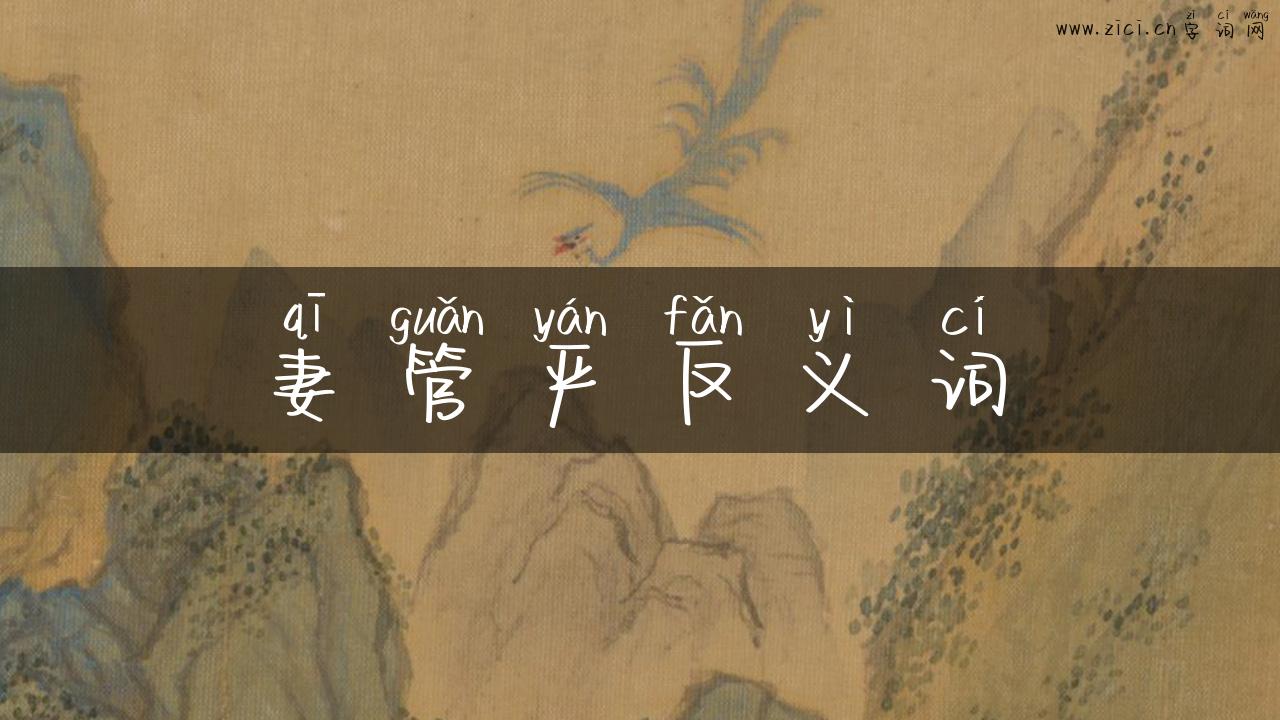 www.zici.cn字词网
zì cí wǎng
qī guǎn yán fǎn yì cí
妻管严反义词